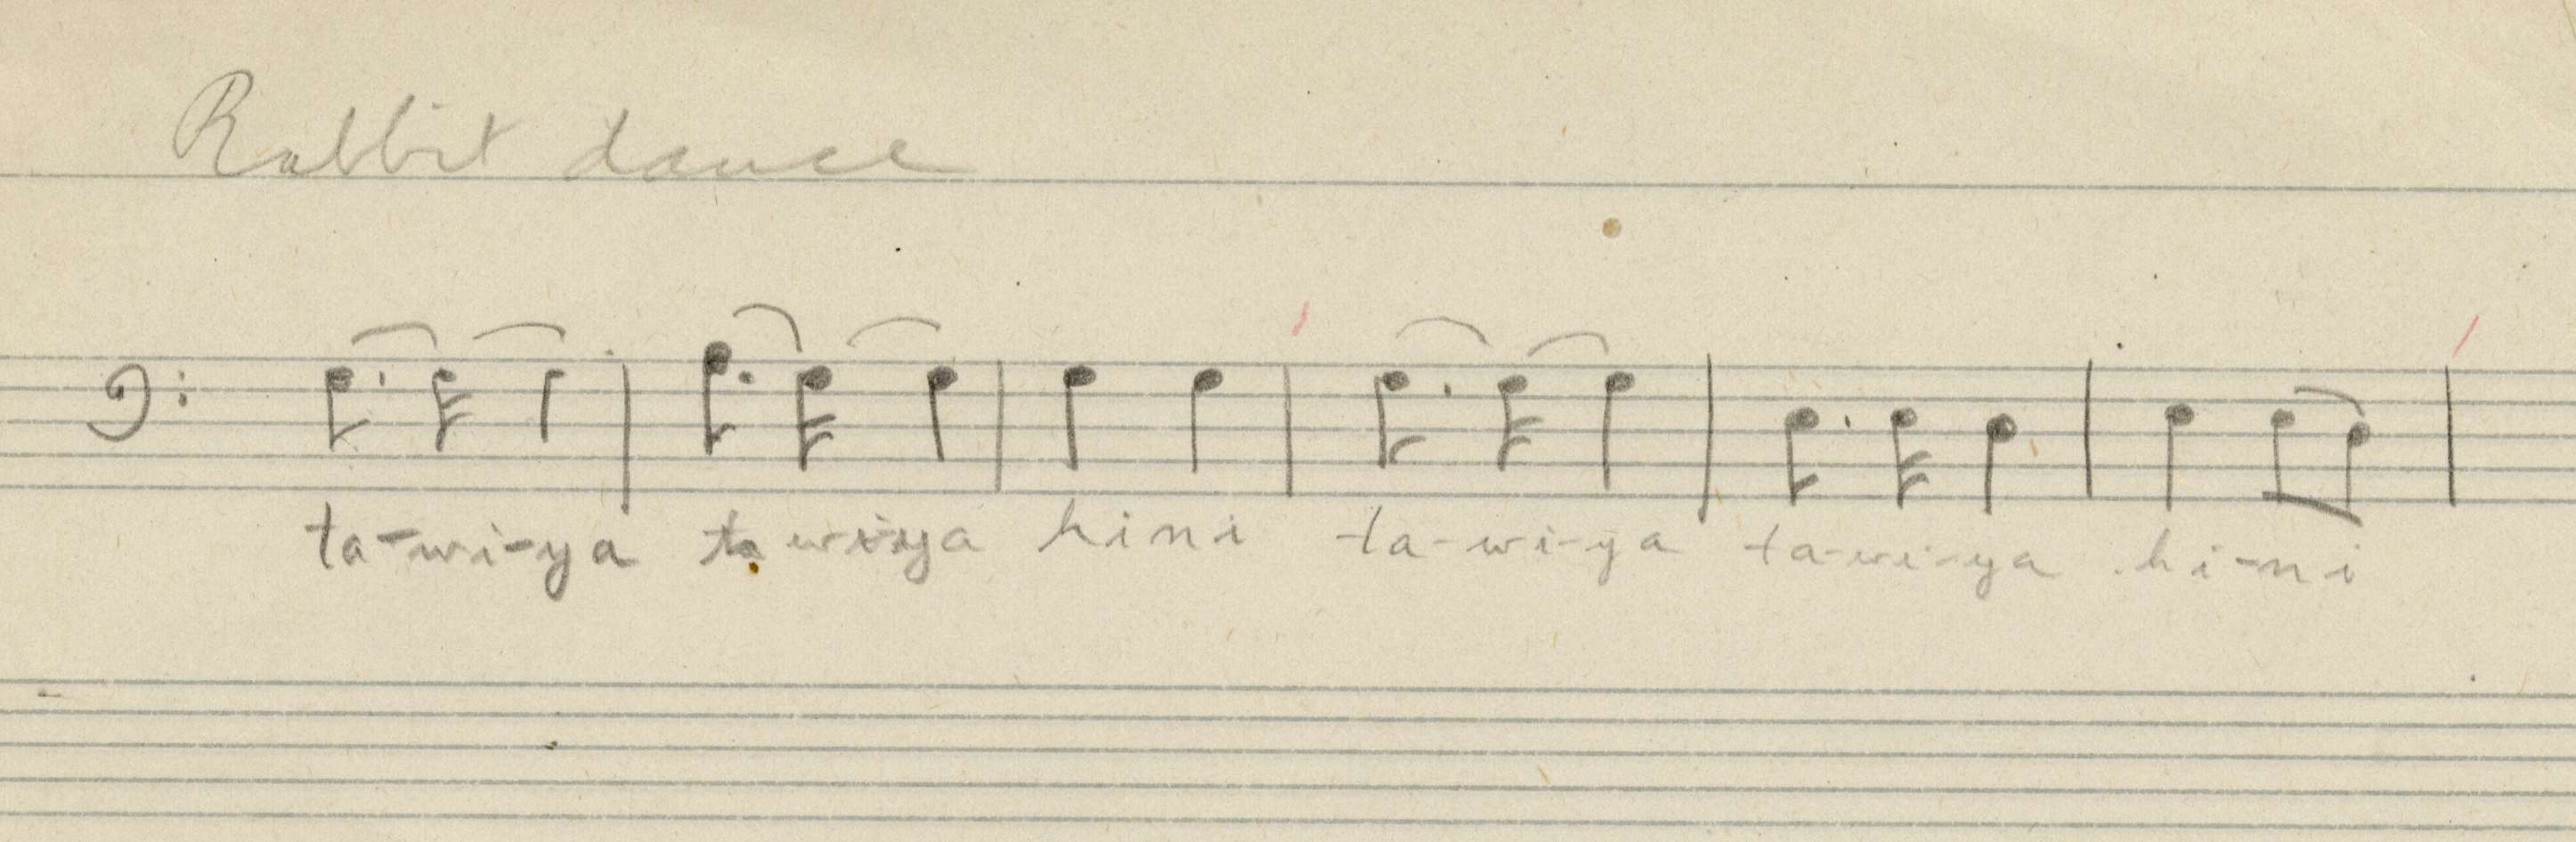 Rabbit dance
ta-wi-ya ta wi-ya hini ta-wi-ya ta-wi-ya hi-ni